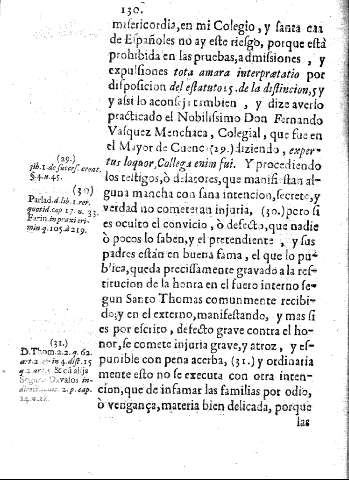 130.
misericordia, en mi Colegio, y santa casa
de Españoles no ay este riesgo, porque està
prohibida en las pruebas, admissiones, y
expulsiones tota amara interprætatio por
disposicion del estatuto 15. de la distincion, 5 y
y assi lo aconseja tambien, y dize averlo
practicado el Nobilissimo Don Fernando
Vasquez Menchaca, Colegial, que fue en
el Mayor de Cuenca (29.) diziendo, exper-
tus loquor, Collega enim fui. Y procediendo
los testigos, ò delatores, que manifiestan al-
guna mancha con sana intencion, secreto, y
verdad no cometeran injuria, (30.) pero si
es oculto el convicio, ò defecto, que nadie
ò pocos lo saben, y el pretendiente, y sus
padres estàn en buena fama, el que lo pu-
blica, queda precissamente gravado a la res-
titucion de la honra en el fuero interno se-
gun Santo Thomas comunmente recibi-
do; y en el externo, manifestando, y mas si
es por escrito, defecto grave contra el ho-
nor, se comete injuria grave, y atroz, y es
punible con pena acerba, (31.) y ordinaria
mente esto no se executa con otra inten-
cion, que de infamar las familias por odio,
ò vengança, materia bien delicada, porque
las
(29.)
lib. 1. de succes. creat.
§. 4. n. 45.
(30)
Parlad. d. lib. 1. rer.
quotid. cap 17. n. 33.
Farin. in praxi cri-
min q. 105. à 219.
(31.)
D. Thom. 2. 2. q. 62.
art. 2. in 4. dist. 15
q 2. art. & cũ alijs
Segura Davalos in
2. p. cap.
14. n. 22.